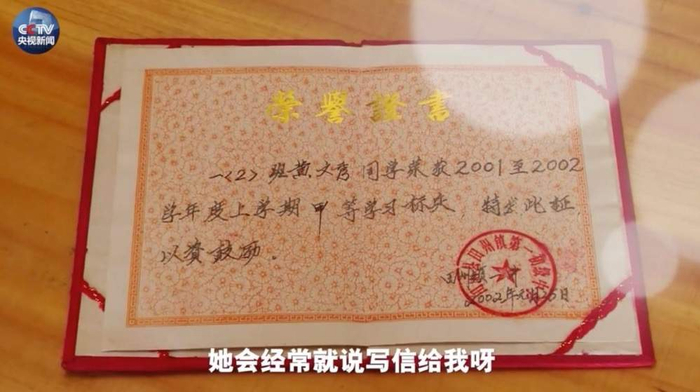 CCTV
央视新闻
荣誉證書
一〈2〉班黄文秀同学荣获2001至2002
学年度上学期甲等学习标兵,特发此证
以资鼓励。
田州镇第一初级中
田州镇一中
2002年元月25日
她会经常就说写信给我呀